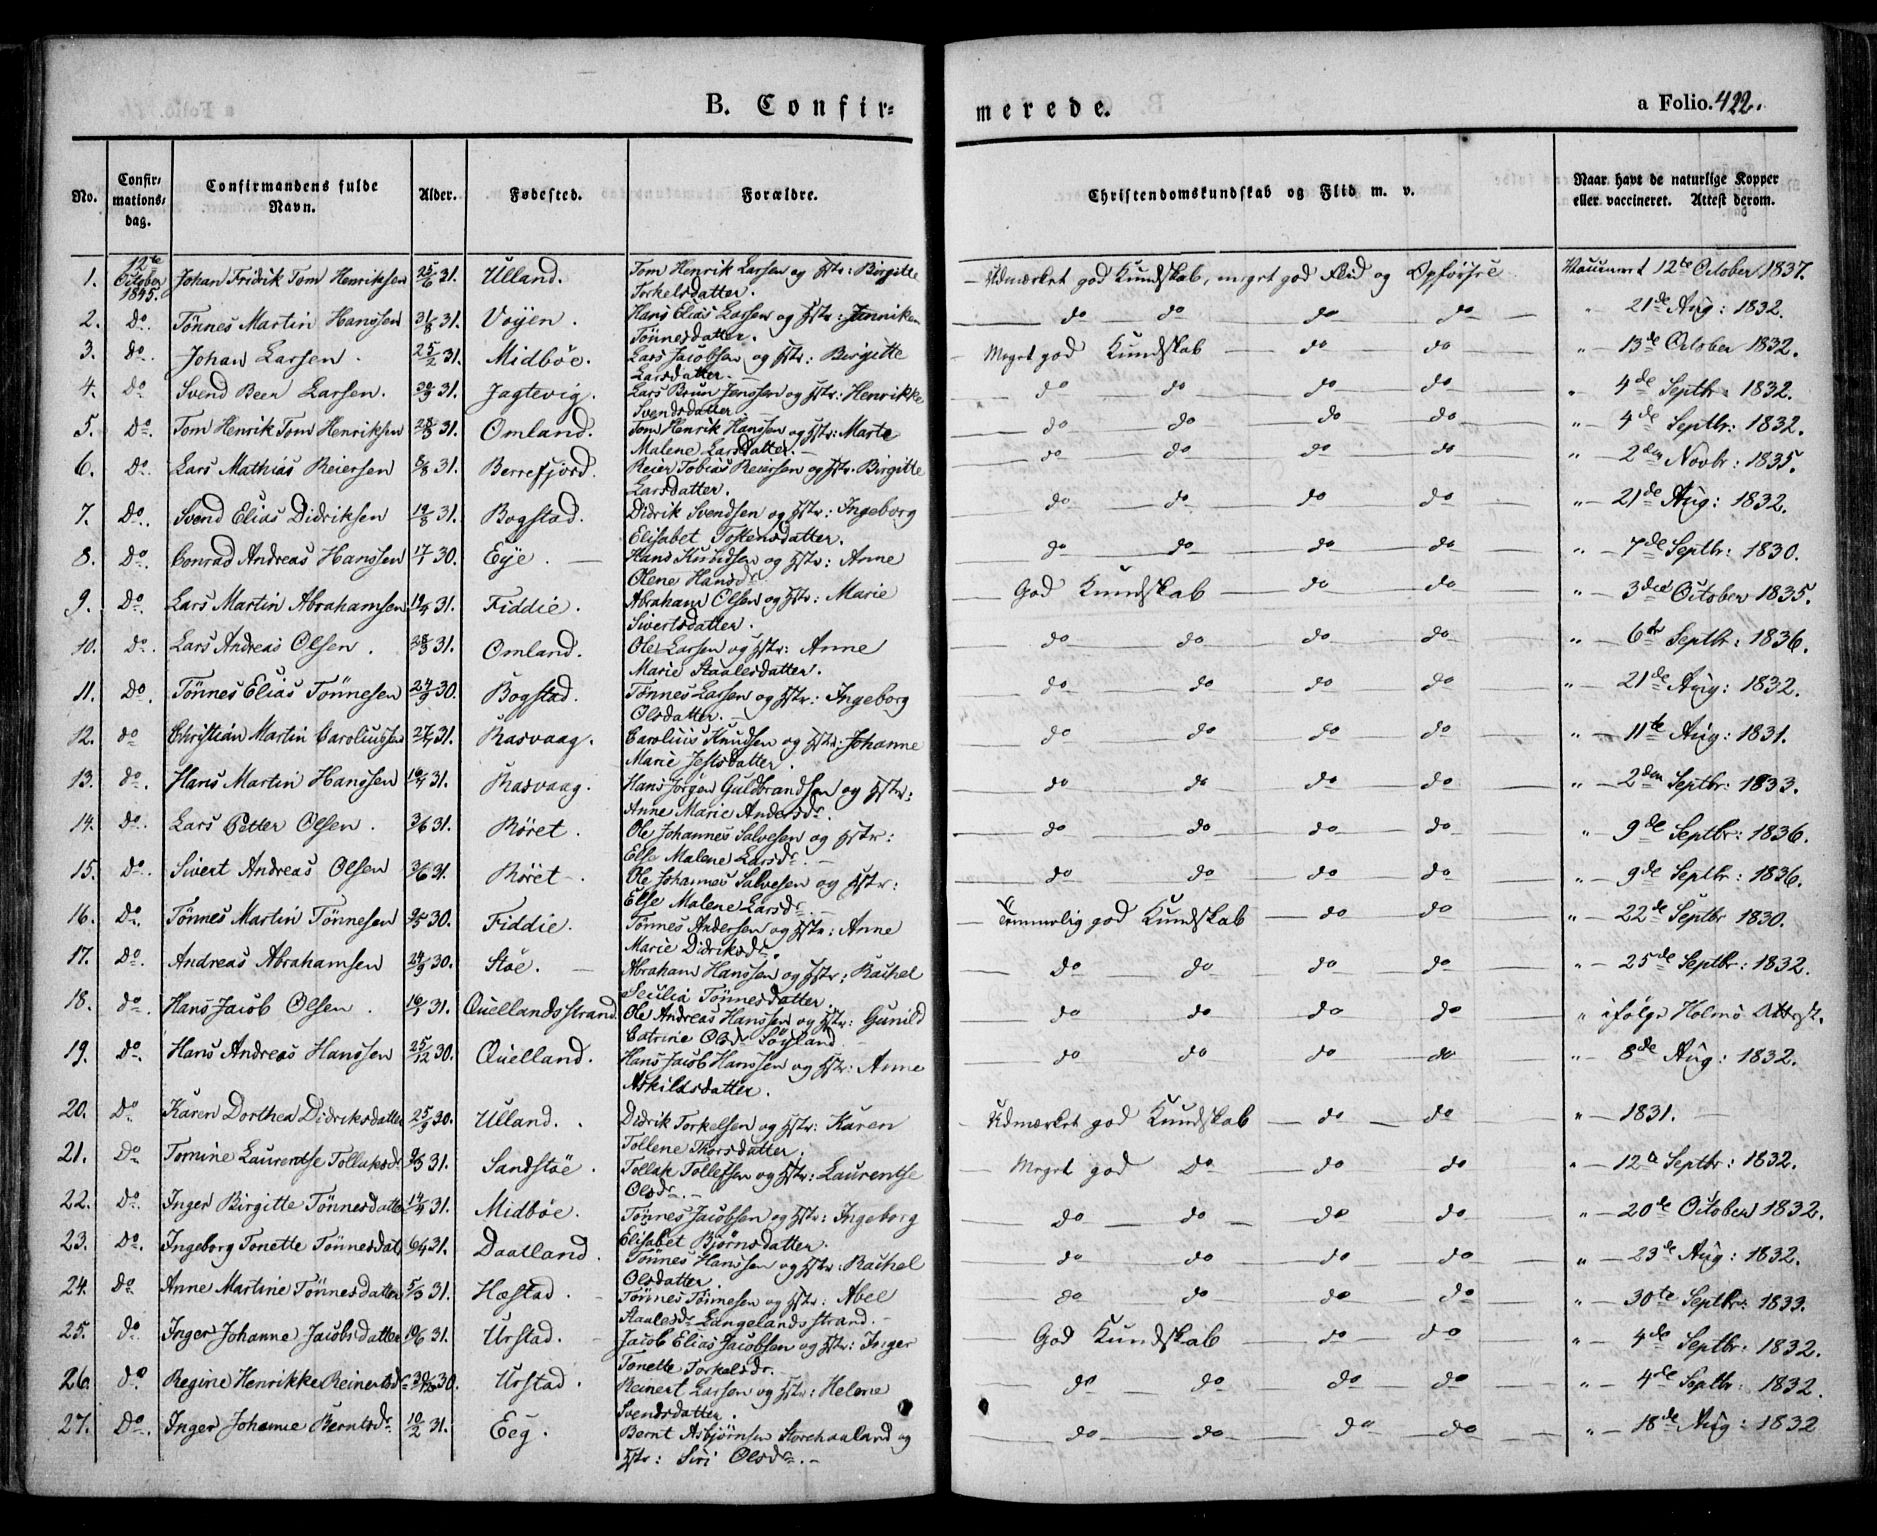 B. Confirmerede. a Folio. 422.
No. Confirmationsdag. Confirmandens fulde Navn. Alder. Fødested. Forældre. Christendomskundskab og Flid m. v. Naar havt de naturlige Kopper eller vaccineret. Attest derom.
1. 12te October 1845. Johan Fridrik Tom Henriksen 25/6 31. Ulland. Tom Henrik Larsen og Hstr: Birgitte Torkelsdatter. Udmærket god Kundskab, meget god Flid og Opførsel Vaccineret 12te October 1837.
2. Do. Tönnes Martin Hanssen 31/8 31. Vöyen. Hans Elias Larsen og Hstr: Jinniken Tönnesdatter. do do do do " 21de Aug: 1832.
3. do. Johan Larsen. 25/2 31. Midböe. Lars Jacobsen og Hstr: Birgitte Larsdatter. Meget god Kundskab do do " 13de October 1832.
4. Do Svend Beer Larsen. 30/9 31. Jagtevig. Lars Brun Jenssen og Hstr: Henrikke Svendsdatter do do do do " 4de Septbr: 1832.
5. Do. Tom Henrik Tom Henriksen 31. Omland. Tom Henrik Hanssen og Hstr: Marte Malene Larsdatter. do do do do " 4de Septbr: 1832.
6. Do. Lars Mathias Reiersen 5/8 31. Berrefjord. Reier Tobias Reiersen og Hstr. Birgitte Larsdatter. do do do do " 2den Novbr: 1835.
7. Do. Svend Elias Didriksen 19/8 31. Bogstad. Didrik Svendsen og Hstr: Ingeborg Elisabet Tostensdatter. do do do do " 21de Aug: 1832.
8. Do. Conrad Andreas Hanssen 30. Eye. Hans Knudsen og Hstr: Anne Olene Hansdr do do do do " 7de Septbr: 1830.
9. Do. Lars Martin Abrahamsen 31. Fiddie. Abraham Olsen og Hstr: Marie Sivertsdatter. God Kundskab do do " 3die October 1835.
10. Do. Lars Andreas Olsen. 31. Omland. Ole Larsen og Hstr: Anne Marie Staalesdatter. do do do do " 6te Septbr: 1836.
11. Do. Tönnes Elias Tönnesen 24/9 30. Bogstad. Tönnes Larsen og Hstr: Ingeborg Olsdatter. do do do do " 21de Aug: 1832.
12. do Christian Martin Caroliussen 31. Rasvaag. Carolius Knudsen og Hstr: Johanne Marie Jestsdatter. do do do do " 11te Aug: 1831.
13. do. Hans Martin Hanssen 31. Rasvaag. Hans Jörgen Guldbrandsen og Hstr: Anne Marie Andersdr. do do do do " 2den Septbr: 1833.
14. do. Lars Petter Olsen. 3/6 31. Röret. Ole Johannes Salvesen og Hstr: Else Malene Larsdr. do do do do " 9de Septbr: 1836.
15. Do. Sivert Andreas Olsen 3/6 31. Röret. Ole Johannes Salvesen og Hstr: Else Malene Larsdr. do do do do " 9de Septbr: 1836.
16. Do. Tönnes Martin Tönnesen 30. Fiddie. Tönnes Andersen og Hstr: Anne Marie Didriksdr. Temmelig god Kundskab do do " 22de Septbr 1830.
17. Do. Andreas Abrahamsen 30. Stöe. Abraham Hanssen og Hstr: Rachel Secilia Tönnesdatter. do do do do " 25de Septbr: 1832.
18. do. Hans Jacob Olsen. 31. Quellandsstrand. Ole Andreas Hanssen og Hstr: Gunild Catrine Olsdr Söyland do do do do " ifølge Holms Attest.
19. Do. Hans Andreas Hanssen 25/12 30. Quelland. Hans Jacob Hanssen og Hstr: Anne Askildsdatter. do do do do " 8de Aug: 1832.
20. Do Karen Dorthea Didriksdatter 25/9 30. Ulland. Didrik Torkelsen og Hstr: Karen Tollene Thorsdatter. Udmærket god Kundskab do do " 1831.
21. Do Tomine Laurentse Tollaksdr 31. Sandstöe. Tollak Tollefsen og Hstr: Laurentse Olsdr. Meget god Do do do " 12te Septbr: 1832.
22. Do. Inger Birgitte Tönnesdatter 31. Midböe. Tönnes Jacobsen og Hstr: Ingeborg Elisabet Bjørnsdatter. do do do do " 20de October 1832.
23. Do. Ingeborg Tonette Tönnesdatr 6/4 31. Daatland. Tönnes Hanssen og Hstr: Rachel Olsdatter. do do do do " 23de Aug: 1832.
24. Do Anne Martine Tönnesdatter 31. Hæstad. Tönnes Tönnesen og Hstr: Abel Staalesdr Langelandsstrand. do do do do " 30te Septbr: 1833.
25. do Inger Johanne Jacobsdatter 10/6 31. Urstad. Jacob Elias Jacobsen og Hstr: Inger Tonette Torkelsdr. God Kundskab do do " 4de Septbr. 1832.
26. do Regine Henrikke Reinertsdr 30. Urstad. Reinert Larsen og Hstr: Helene Svendsdatter. do do do do " 4de Septbr: 1832.
27. Do. Inger Johanne Berntsdr 10/2 31. Eeg. Bernt Asbjørnsen Storehaaland og Hstr: Siri Olsdr. do do do do " 18de Aug: 1832